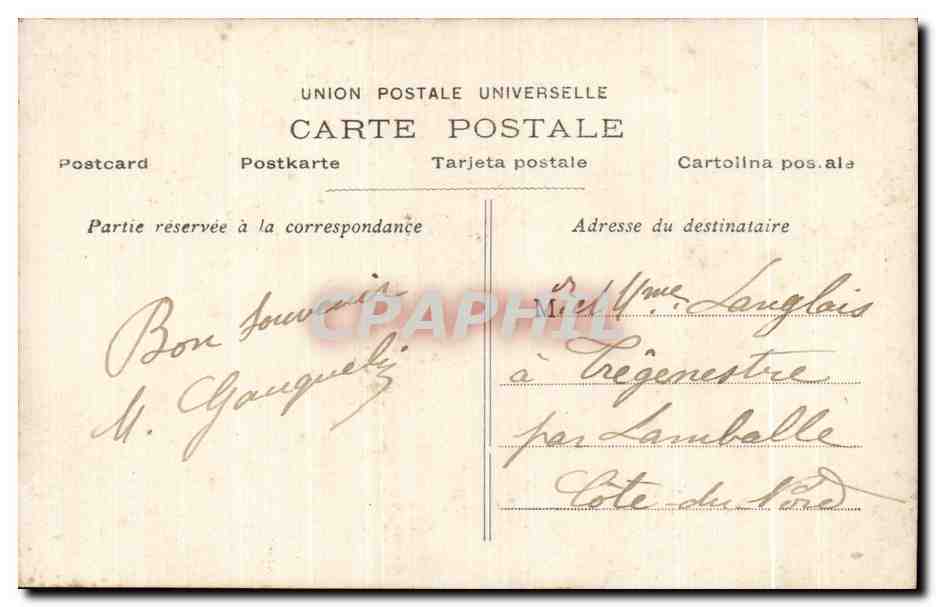 UNION POSTALE UNIVERSELLE
CARTE POSTALE
Postcard Postkarte Tarjeta postale Cartolina pos.ale
Partie réservée à la correspondance
Adresse du destinataire
Bon Souvenir
M.
CPAPHIL
Mr et Mme Langlais
à Trégenestre
par Lamballe
Côte-du-Nord